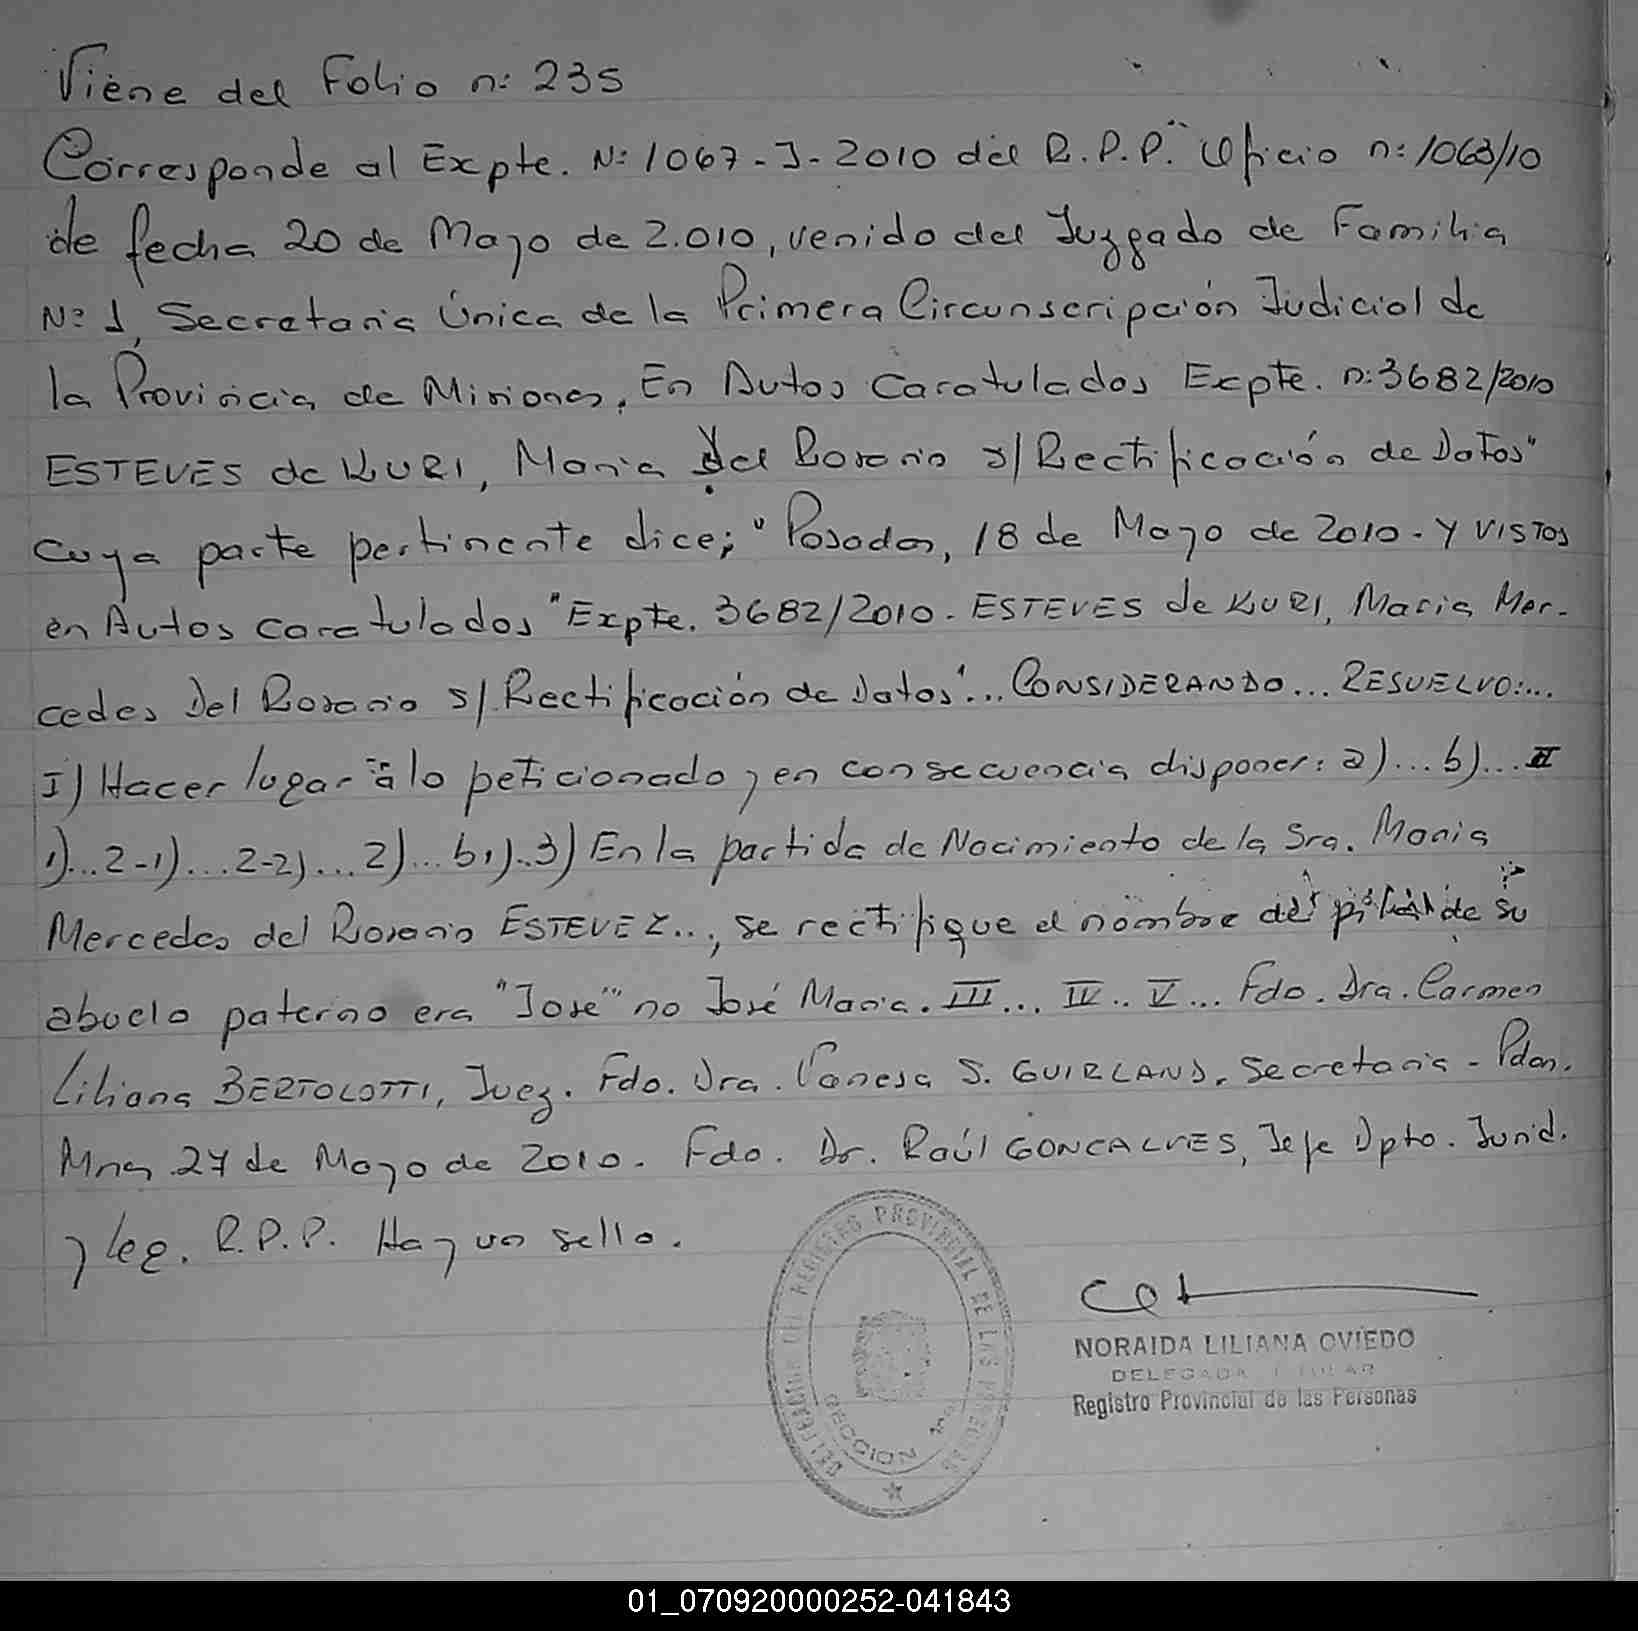 Viene del Folio n: 235
Corresponde al Expte. N: 1067-J-2010 del R.P.P." Oficio n: 1063/10
de fecha 20 de Mayo de 2.010, venido del Juzgado de Familia
N: 1, Secretaria Única de la Primera Circunscripción Judicial de
la Provincia de Misiones. En Autos Caratulados Expte. n: 3682/2010
ESTEVES de KURI, Maria del Rosario s/ Rectificación de Datos"
cuya parte pertinente dice; "Posadas, 18 de Mayo de 2010. Y VISTOS
en Autos caratulados "Expte. 3682/2010. ESTEVES de KURI, Maria Mer-
cedes Del Rosario s/ Rectificación de Datos"... CONSIDERANDO... RESUELVO:...
I) Hacer lugar a lo peticionado y en consecuencia disponer: a)... b)... II
1)... 2-1)... 2-2)... 2)... b1)... 3) En la partida de Nacimiento de la Sra. Maria
Mercedes del Rosario ESTEVEZ..., se rectifique el nombre del de su
abuelo paterno era "José" no José Maria. III... IV.. V... Fdo. Dra. Carmen
Liliana BERTOLOTTI, Juez. Fdo. Dra. Vanesa S. GUIRLAND, Secretaria - Pdas.
Mnes 27 de Mayo de 2010. Fdo. Dr. Raúl GONCALVES, Jefe Dpto. Jurid.
y leg. R.P.P. Hay un sello.
REGISTRO PROVINCIAL DE LAS
NORAIDA LILIANA OVIEDO
DELEGADA TITULAR
Registro Provincial de las Personas
01_070920000252-041843